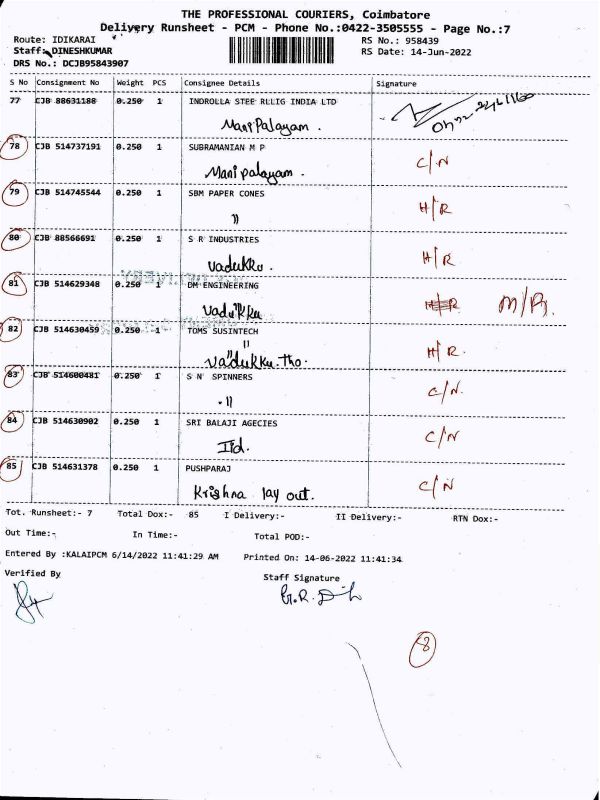 THE PROFESSIONAL COURIERS, Coimbatore
Delivery Runsheet - PCM - Phone No.:0422-3505555 - Page No.:7
Route: IDIKARAI RS No.: 958439
Staff: DINESHKUMAR RS Date: 14-Jun-2022
DRS No.: DCJB95843907
S No Consignment No Weight PCS Consignee Details Signature
77 CJB 88631188 0.250 1 INDROLLA STEE RLLIG INDIA LTD
Manipalayam.
78 CJB 514737191 0.250 1 SUBRAMANIAN M P C/N
Manipalayam.
79 CJB 514745544 0.250 1 SBM PAPER CONES H/R
"
80 CJB 88566691 0.250 1 S R INDUSTRIES H/R
Vadukku.
81 CJB 514629348 0.250 1 DM ENGINEERING H/R M/R.
Vadukku
82 CJB 514630459 0.250 1 TOMS SUSINTECH H/R.
"
Vadukku.tho.
83 CJB 514600481 0.250 1 S N SPINNERS C/N.
"
84 CJB 514630902 0.250 1 SRI BALAJI AGECIES C/N
Itd.
85 CJB 514631378 0.250 1 PUSHPARAJ C/N
Krishna lay out.
Tot. Runsheet:- 7 Total Dox:- 85 I Delivery:- II Delivery:- RTN Dox:-
Out Time:- In Time:- Total POD:-
Entered By :KALAIPCM 6/14/2022 11:41:29 AM Printed On: 14-06-2022 11:41:34
Verified By Staff Signature
8